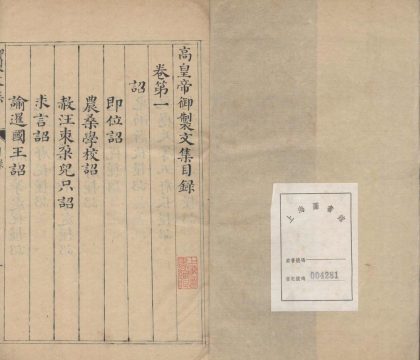 高皇帝御製文集目録
卷第一
詔
即位詔
農桑學校詔
赦汪東朶兒只詔
求言詔
諭暹國王詔
004281